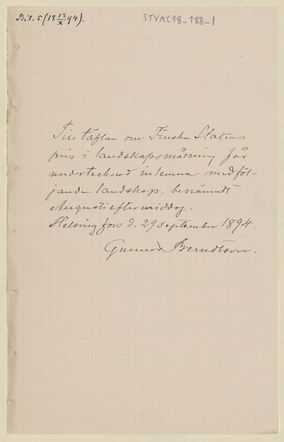 B.1.5 (18 13/X 94).
STYAC18-188-1
Till täflan om Finska Statens
pris i landskapsmålning får
undertecknad inlemna medföl-
jande landskap, benämdt
Augustieftermiddag.
Helsingfors d. 29 September 1894.
Gunnar Berndtson.